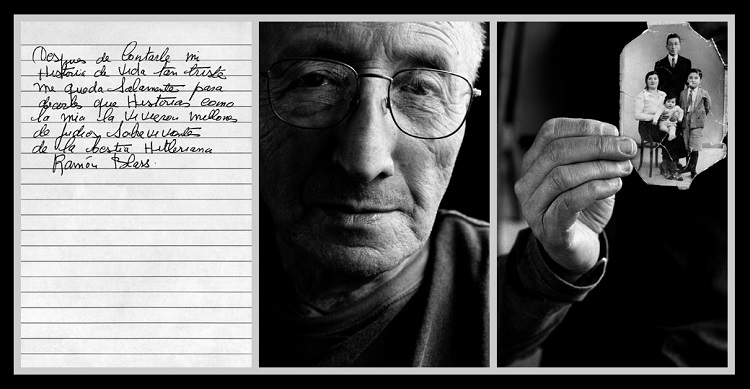 Despues de Contarle mi
Historia de vida tan triste
me queda Solamente para
decirles que Historias como
la mia la vivieron millones
de judios Sobrevivientes
de la bestia Hitleriana
Ramón Blass.